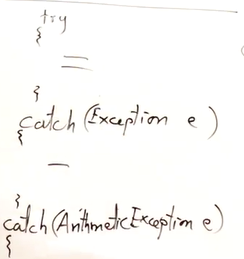 try
{
}
catch (Exception e)
{
}
catch (ArithmeticException e)
{